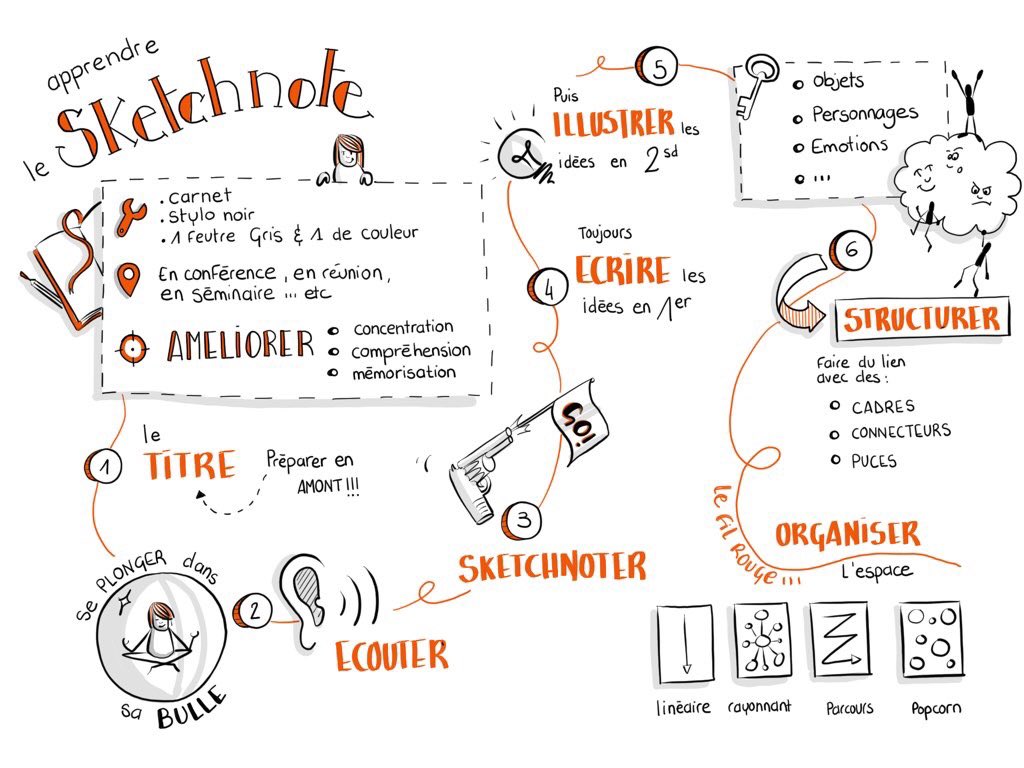 apprendre
le Sketchnote
. carnet
. stylo noir
. 1 feutre Gris & 1 de couleur
En conférence, en réunion,
en séminaire ... etc
AMELIORER
concentration
compréhension
mémorisation
1
le
TITRE
Préparer en
AMONT!!!
Se PLONGER dans
sa BULLE
2
ECOUTER
3
GO!
SKETCHNOTER
4
Toujours
ECRIRE les
idées en 1er
5
Puis
ILLUSTRER les
idées en 2sd
Objets
Personnages
Emotions
...
6
STRUCTURER
Faire du lien
avec des :
CADRES
CONNECTEURS
PUCES
Le fil ROUGE...
ORGANISER
L'espace
linéaire
rayonnant
Parcours
Popcorn